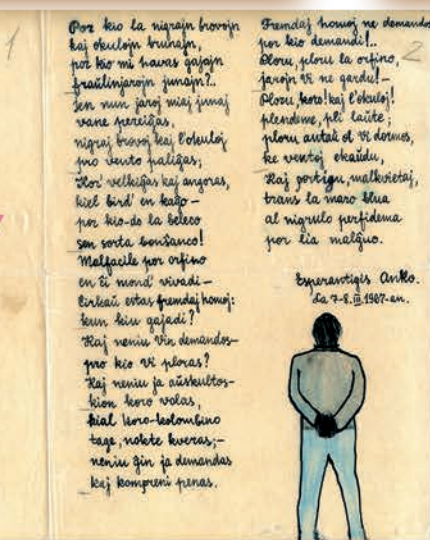 1
Por kio la nigrajn brovojn
kaj okulojn brunajn,
por kio mi havas gajajn
fraŭlinjarojn junajn?..
Jen nun jaroj miaj junaj
vane pereiĝas,
nigraj brovoj kaj l'okuloj
pro vento paliĝas;
Kor' velkiĝas kaj angoras,
kiel bird' en kaĝo –
por kio do la beleco
sen sorta bonŝanco!
Malfacile por orfino
en ĉi mond' vivadi –
Ĉirkaŭ estas fremdaj homoj:
kun kiu gajadi?
Kaj neniu vin demandos –
pro kio vi ploras?
Kaj neniu ja aŭskultos –
kion koro volas,
kial koro-kolombino
tage, nokte kveras; –
neniu ĝin ja demandas
kaj kompreni penas.
2
Fremdaj homoj ne demandos
por kio demandi!..
Ploru, ploru la orfino,
jarojn vi ne gardu! –
Ploru, koro! kaj l'okuloj!
plendeme, pli laŭte;
ploru antaŭ ol vi dormos,
ke ventoj ekaŭdu,
Kaj portigu, malkvietaj,
trans la maro blua
al nigrulo perfidema
por lia malĝuo.
Esperantigis Anko.
La 7-8.III.1987-an.